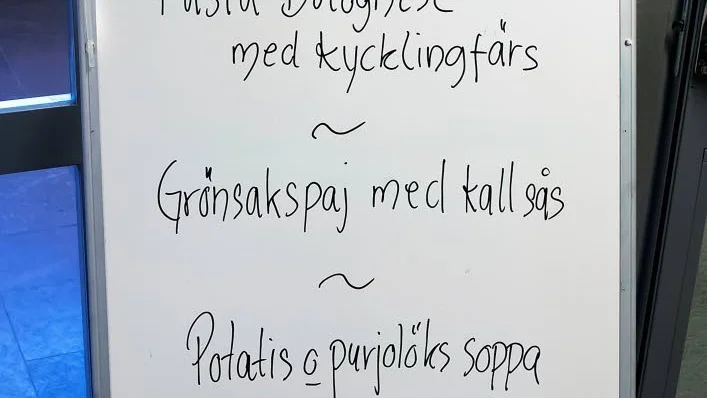 Pasta Bolognese
med kycklingfärs
~
Grönsakspaj med kall sås
~
Potatis o purjolöks soppa